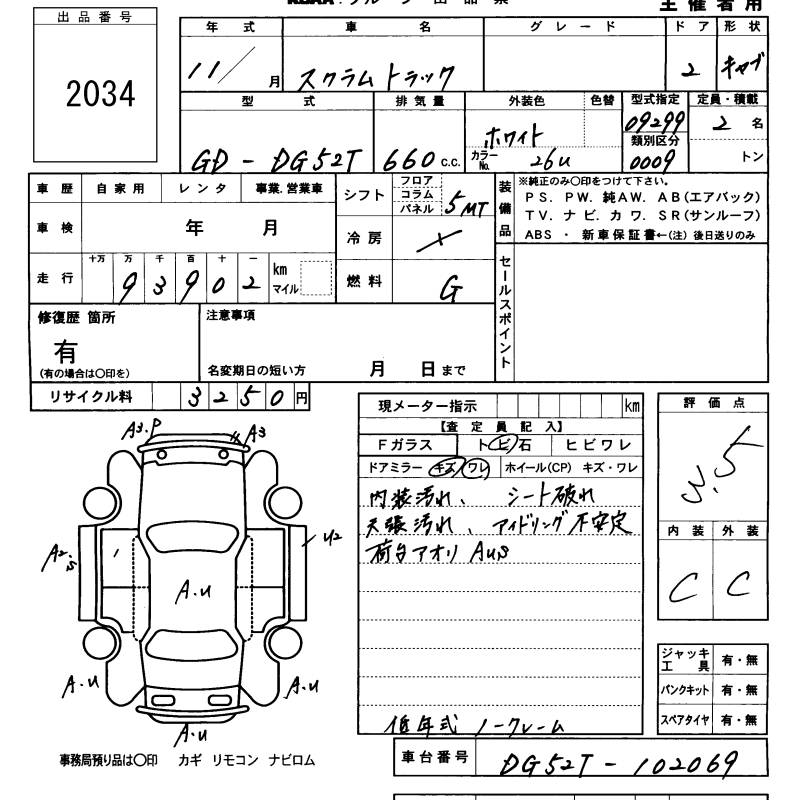 出品番号
2034
主催者用
年式 車名 グレード ドア 形状
11/ 月 スクラムトラック 2 キャブ
型式 排気量 外装色 色替 型式指定 定員・積載
GD-DG52T 660 C.C. ホワイト 09299 2 名
類別区分
カラーNo. 26U 0009 トン
車歴 自家用 レンタ 事業.営業車
シフト フロア コラム パネル 5MT
装備品
※純正のみ〇印をつけて下さい。
PS. PW. 純AW. AB(エアバック)
TV. ナビ. カワ. SR(サンルーフ)
ABS ・ 新車保証書←(注) 後日送りのみ
車検 年 月
冷房
走行 十万 万 千 百 十 一
93902 km マイル
燃料 G
セールスポイント
修復歴 箇所
有
(有の場合は〇印を)
注意事項
名変期日の短い方 月 日まで
リサイクル料 3250 円
現メーター指示 km
【査定員記入】
Fガラス トビ石 ヒビワレ
ドアミラー キズ/ワレ ホイール(CP) キズ・ワレ
内装汚れ、シート破れ
天張汚れ、アイドリング不安定
荷台アオリ AUS
低年式 ノークレーム
評価点
3.5
内装 外装
C C
ジャッキ工具 有・無
パンクキット 有・無
スペアタイヤ 有・無
A3.P A3
A2.S U2
A.U
A.U A.U
A.U
事務局預り品は〇印 カギ リモコン ナビロム
車台番号 DG52T-102069